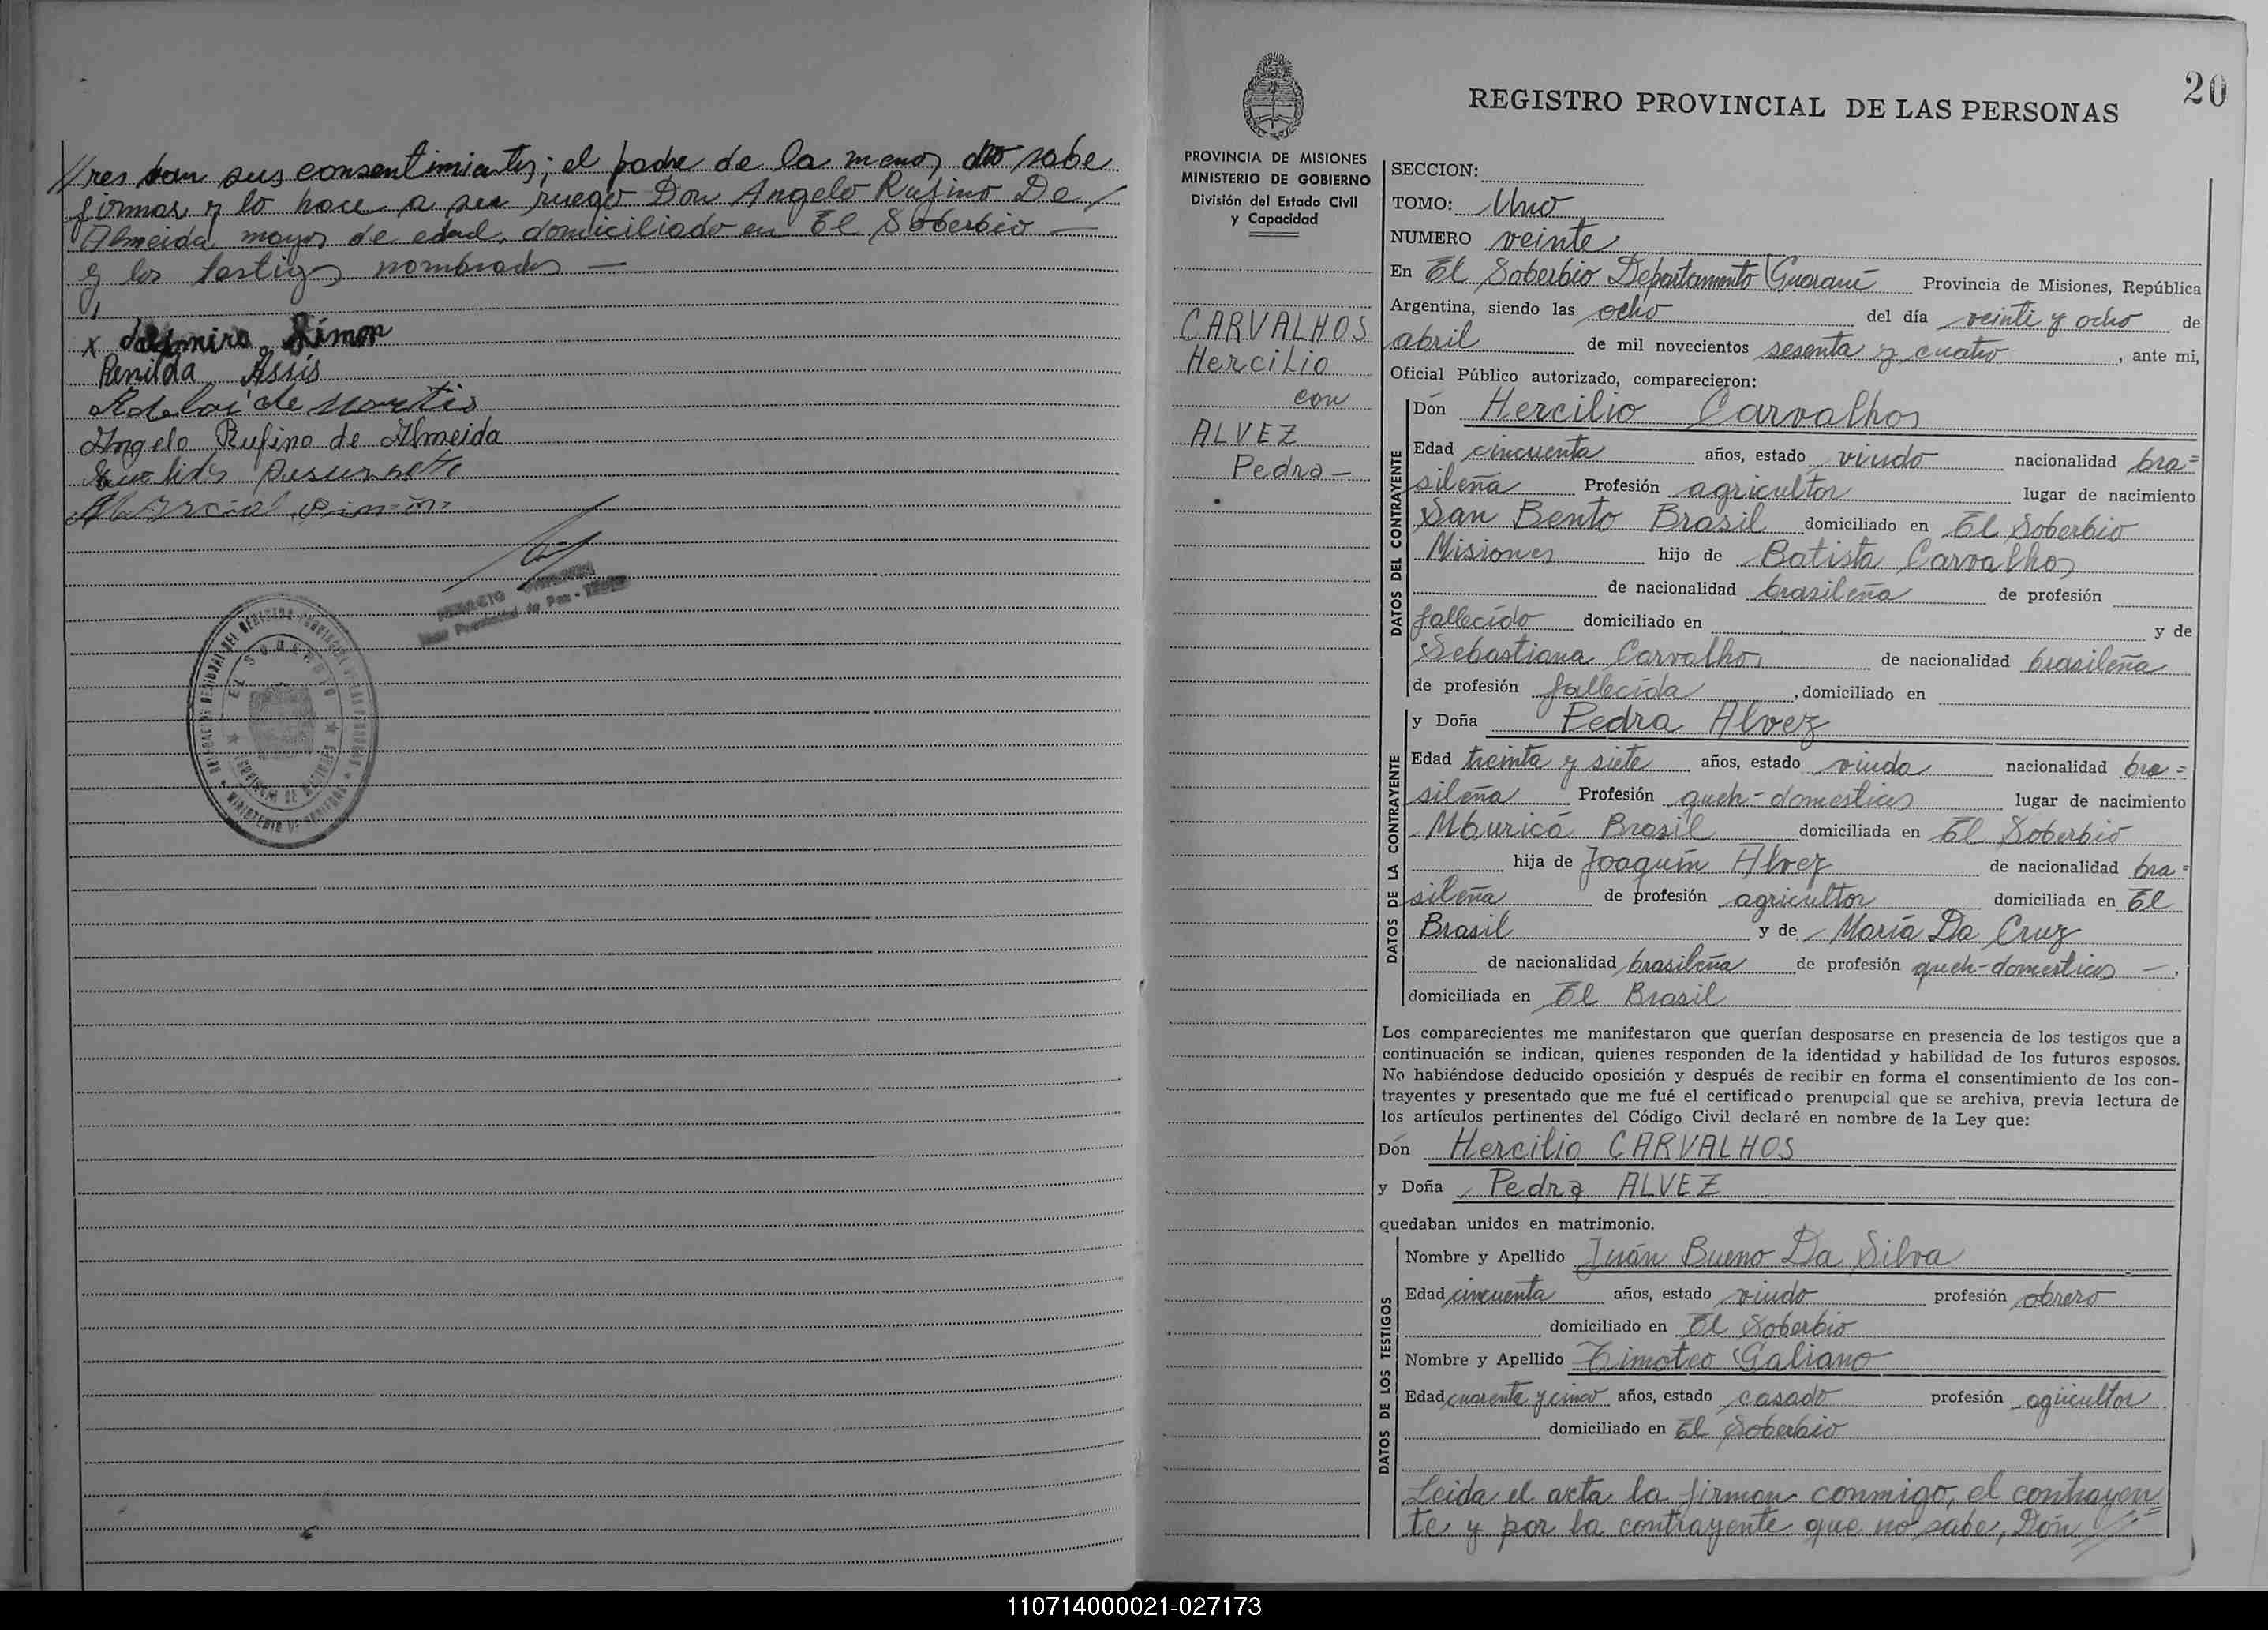 //res dan sus consentimientos; el padre de la menor no sabe
firmar y lo hace a su ruego Don Angelo Rufino De
Almeida mayor de edad, domiciliado en El Soberbio —
y los testigos nombrados —
x Simon
Renilda Assis
Angelo Rufino de Almeida
20
REGISTRO PROVINCIAL DE LAS PERSONAS
PROVINCIA DE MISIONES
MINISTERIO DE GOBIERNO
División del Estado Civil
y Capacidad
CARVALHOS
Hercilio
con
ALVEZ
Pedra —
SECCION:
TOMO: Uno
NUMERO veinte
En El Soberbio Departamento Guaraní Provincia de Misiones, República
Argentina, siendo las ocho del día veinti y ocho de
abril de mil novecientos sesenta y cuatro, ante mi,
Oficial Público autorizado, comparecieron:
DATOS DEL CONTRAYENTE
Dón Hercilio Carvalhos
Edad cincuenta años, estado viudo nacionalidad bra=
sileña Profesión agricultor lugar de nacimiento
San Bento Brasil domiciliado en El Soberbio
Misiones hijo de Batista Carvalhos
de nacionalidad brasileña de profesión
fallecido domiciliado en y de
Sebastiana Carvalhos de nacionalidad brasileña
de profesión fallecida, domiciliado en
DATOS DE LA CONTRAYENTE
y Doña Pedra Alvez
Edad treinta y siete años, estado viuda nacionalidad bra=
sileña Profesión queh-domesticos lugar de nacimiento
Mburicá Brasil domiciliada en El Soberbio
hija de Joaquín Alvez de nacionalidad bra=
sileña de profesión agricultor domiciliada en El
Brasil y de María Da Cruz
de nacionalidad brasileña de profesión queh-domesticos —,
domiciliada en El Brasil
Los comparecientes me manifestaron que querían desposarse en presencia de los testigos que a
continuación se indican, quienes responden de la identidad y habilidad de los futuros esposos.
No habiéndose deducido oposición y después de recibir en forma el consentimiento de los con-
trayentes y presentado que me fué el certificado prenupcial que se archiva, previa lectura de
los artículos pertinentes del Código Civil declaré en nombre de la Ley que:
Dón Hercilio CARVALHOS
y Doña Pedra ALVEZ
quedaban unidos en matrimonio.
DATOS DE LOS TESTIGOS
Nombre y Apellido Juán Bueno Da Silva
Edad cincuenta años, estado viudo profesión obrero
domiciliado en El Soberbio
Nombre y Apellido Timoteo Galiano
Edad cuarenta y cinco años, estado casado profesión agricultor
domiciliado en El Soberbio
Leida el acta la firman conmigo, el contrayen=
te y por la contrayente que no sabe, Dón //
110714000021-027173